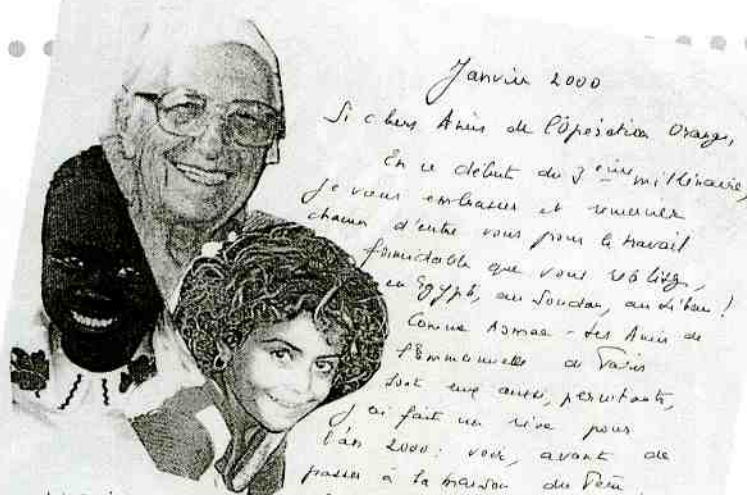 Janvier 2000
Si chers Amis de l'Opération Orange,
En ce début du 3ème millénaire,
je veux embrasser et remercier
chacun d'entre vous pour le travail
formidable que vous réalisez,
en Egypte, au Soudan, au Liban !
Comme Asmae - Les Amis de
Sr Emmanuelle de Paris
sont eux aussi, performants,
J'ai fait un rêve pour
l'an 2000 : voir, avant de
passer à la maison du Père